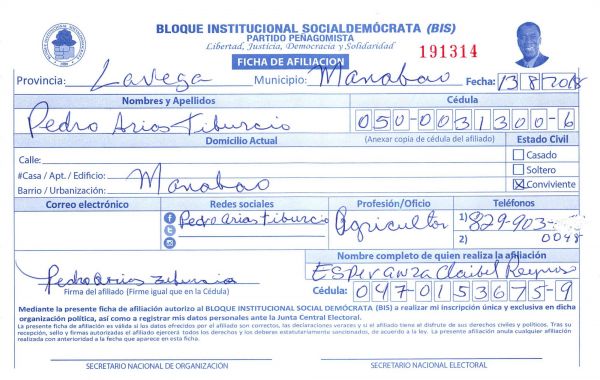 BLOQUE INSTITUCIONAL SOCIALDEMÓCRATA (BIS)
PARTIDO PEÑAGOMISTA
Libertad, Justicia, Democracia y Solidaridad
191314
FICHA DE AFILIACION
Provincia: La Vega Municipio: Manabao Fecha: 13/8/2018
Nombres y Apellidos Cédula
Pedro Arias Tiburcio 050-0031300-6
Domicilio Actual (Anexar copia de cédula del afiliado) Estado Civil
Calle: Casado
#Casa / Apt. / Edificio: Soltero
Barrio / Urbanización: Manabao Conviviente
Correo electrónico Redes sociales Profesión/Oficio Teléfonos
Pedro Arias Tiburcio Agricultor 1) 829-903-
2) 0048
Nombre completo de quien realiza la afiliación
Esperanza Claibel Reynoso
Pedro Arias Tiburcio
Firma del afiliado (Firme igual que en la Cédula) Cédula: 047-0153675-9
Mediante la presente ficha de afiliación autorizo al BLOQUE INSTITUCIONAL SOCIAL DEMÓCRATA (BIS) a realizar mi inscripción única y exclusiva en dicha
organización política, así como a registrar mis datos personales ante la Junta Central Electoral.
La presente ficha de afiliación es válida si los datos ofrecidos por el afiliado son correctos, las declaraciones veraces y si el afiliado tiene el disfrute de sus derechos civiles y políticos. Tras su
recepción, sello y firmas autorizadas el afiliado ejercerá todos los derechos y los deberes estatutariamente sancionados, de acuerdo a la ley. La presente afiliación anula cualquier afiliación
realizada con anterioridad a la fecha que aparece en esta ficha.
SECRETARIO NACIONAL DE ORGANIZACIÓN SECRETARIO NACIONAL ELECTORAL